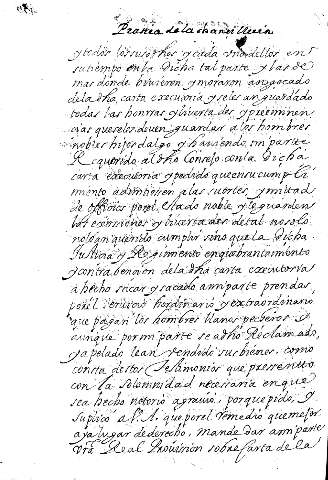 Pratica de la chancilleria
y todos los susodhos y cada uno dellos en
su tiempo en la dicha tal parte y las de
mas donde bivieron y moraron an gozado
de la dha carta executoria y se les an guardado
todas las honrras y livertades y preeminen
cias que se les deven guardar a los hombres
nobles hijosdalgo y haviendo mi parte
Requerido al dho Consejo con la Dicha
carta executoria y pedido que en su cumpli
mento admitiesen a las suertes, y mitad
de officios por el estado noble y le guarden
las exemsiones y livertades de tal no solo
no lo an querido cumplir sino que la Dicha
Justicia y Regimiento en quebrantamiento
y contrabencion de la dha carta executoria
a hecho sacar y sacado a mi parte prendas,
por el servicio hordinario y extraordinario
que pagan los hombres llanos pecheros y
aunque por mi parte se a dho Reclamado,
y apelado le an vendido sus bienes, como
consta destos Testimonios que pressento
con la Solemnidad necesaria en que
sea hecho notorio agravio, por que pido, y
Suplico a V.A. que por el remedio que mejor
aya lugar de derecho, mande dar a mi parte
Vra Real Provision sobre carta de la